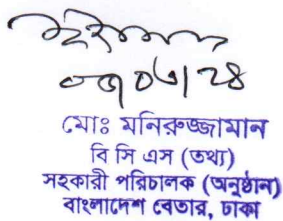 ০৯।০৬।২৪
মোঃ মনিরুজ্জামান
বি সি এস (তথ্য)
সহকারী পরিচালক (অনুষ্ঠান)
বাংলাদেশ বেতার, ঢাকা